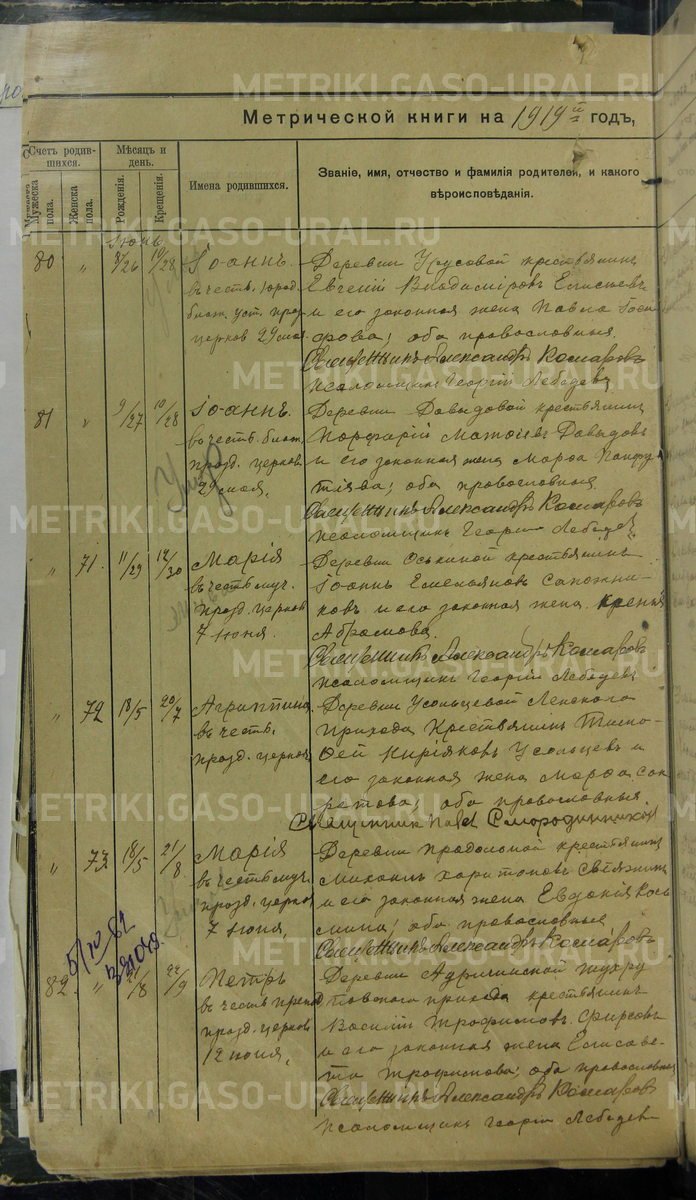 METRIKI.GASO-URAL.RU
Метрической книги на 1919 й годъ,
Счетъ родившихся.
Мужеска пола.
Женска пола.
Мѣсяцъ и день.
Рожденія.
Крещенія.
Имена родившихся.
Званіе, имя, отчество и фамилія родителей, и какого вѣроисповѣданія.
Іюнь
80 " 26 10/28
Іоаннъ.
въ честь
церков 29 мая
Деревни Урусовой крестьянинъ
Евгеній Владиміровъ Елисѣевъ
и его законная жена Павла
оба православные.
Священникъ Александръ Комаровъ
Псаломщикъ Георгій Лебедевъ
81 " 9/27 10/28
Іоаннъ.
въ честь блаж.
празд. церков.
29 мая.
Умер
Деревни Давыдовой крестьянинъ
Порфирій Матѳіевъ Давыдовъ
и его законная жена Марѳа
оба православные
Священникъ Александръ Комаровъ
Псаломщикъ Георгій Лебедевъ
" 71. 11/29 12/30
Марія
въ честь муч.
празд. церков
7 іюня.
Деревни Оськиной крестьянинъ
Іоаннъ Емельяновъ Сапожни-
ковъ и его законная жена
Абрамова.
Священникъ Александръ Комаровъ
Псаломщикъ Георгій Лебедевъ
" 72 18/5 20/7
Агриппина
въ честь.
празд. церков
Деревни Усольцевой Ленского
прихода крестьянинъ Тимо-
ѳей Киріяковъ Усольцевъ и
его законная жена Марѳа Сок
ратова; оба православные.
Священникъ
" 73 18/5 21/8
Марія
въ честь муч.
празд. церков
7 іюня,
Михаилъ Харитоновъ
и его законная жена Евдокія Козь
мина; оба православные
Священникъ Александръ Комаровъ
82 " 21/8 22/9
Петръ
въ честь препод
празд. церков
12 іюня,
Деревни
прихода крестьянинъ
Василій Трофимовъ Фирсовъ
и его законная жена Елисаве-
та Трофимова; оба православные
Священникъ Александръ Комаровъ
Псаломщикъ Георгій Лебедевъ